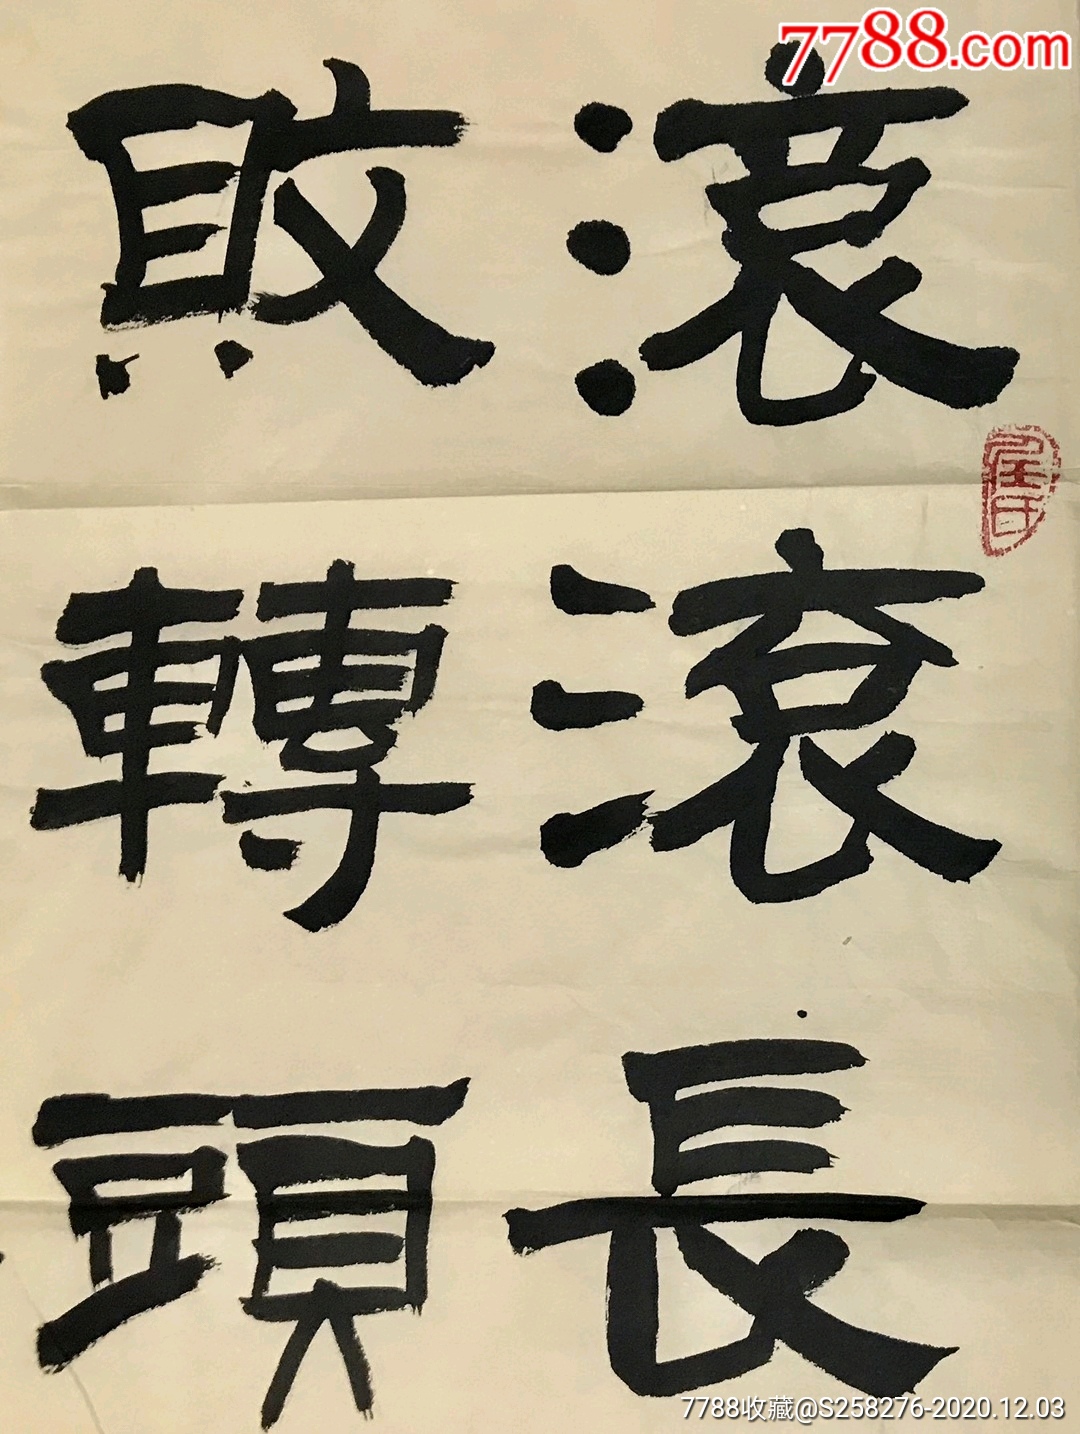 滾滾長
敗轉頭
7788.com
7788收藏@S258276-2020.12.03